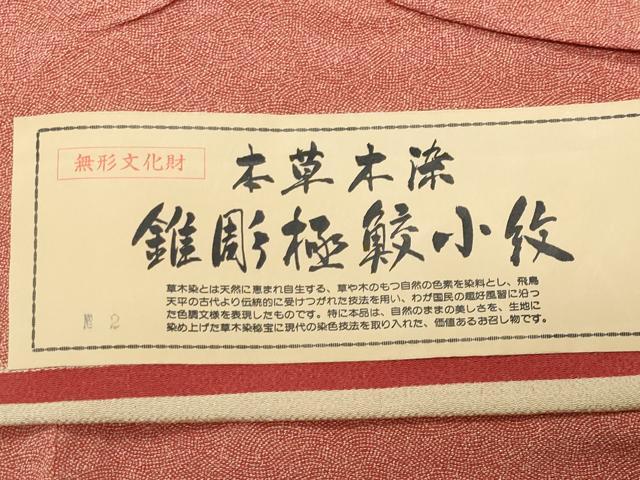 無形文化財
本草木染
錐彫極鮫小紋
草木染とは天然に恵まれ自生する、草や木のもつ自然の色素を染料とし、飛鳥
天平の古代より伝統的に受けつがれた技法を用い、わが国民の趣好風習に沿っ
た色調文様を表現したものです。特に本品は、自然のままの美しさを、生地に
染め上げた草木染秘宝に現代の染色技法を取り入れた、価値あるお召し物です。
№ 2